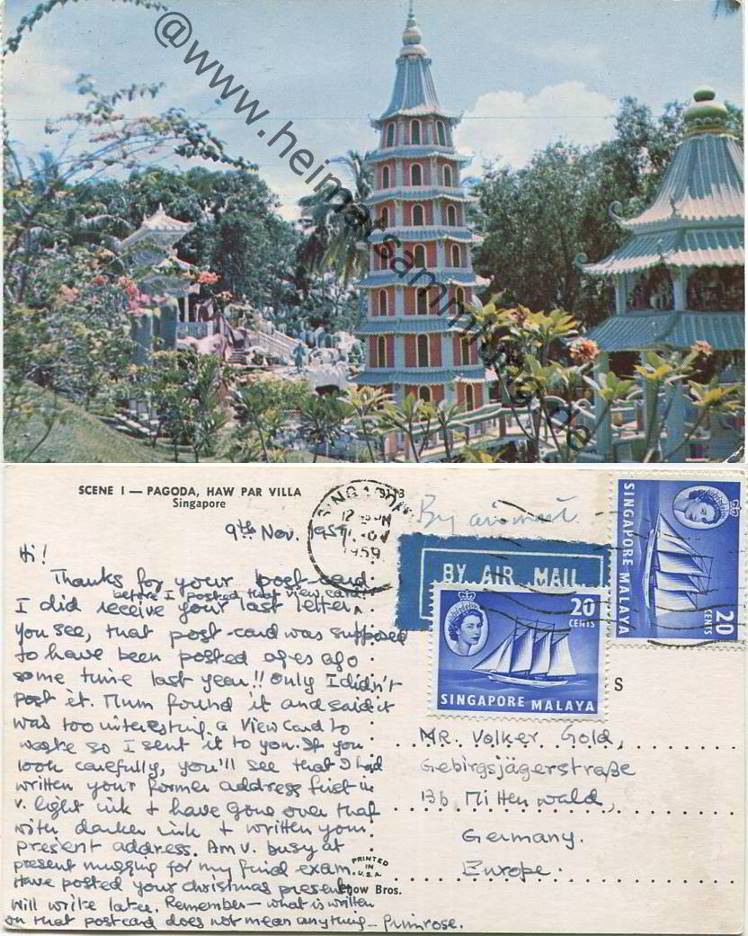 @www.heimatsammlung.de
SCENE I — PAGODA, HAW PAR VILLA
Singapore
9th Nov. 1959.
SINGAPORE
1959
By air mail
BY AIR MAIL
20
CENTS
SINGAPORE MALAYA
20
CENTS
SINGAPORE MALAYA
Hi!
Thanks for your post-card.
before I posted that view card
I did receive your last letter
You see, that post-card was supposed
to have been posted ages ago
some time last year!! Only I didn't
post it. Mum found it and said it
was too interesting a View Card to
waste so I sent it to you. If you
look carefully, you'll see that I had
written your former address first in
v. light ink & have gone over that
with darker ink & written your
present address. Am v. busy at
present mugging for my final exam.
Have posted your christmas present
Will write later. Remember — what is written
on that postcard does not mean anything — Primrose.
PRINTED
IN
U.S.A.
how Bros.
S
MR. Volker Gold,
Gebirgsjägerstraße
13b Mittenwald,
Germany.
Europe.